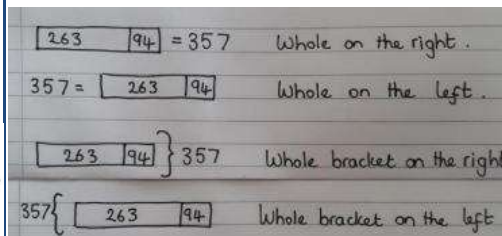 263 94 = 357 Whole on the right.
357 = 263 94 Whole on the left.
263 94 } 357 Whole bracket on the right
357 { 263 94 Whole bracket on the left